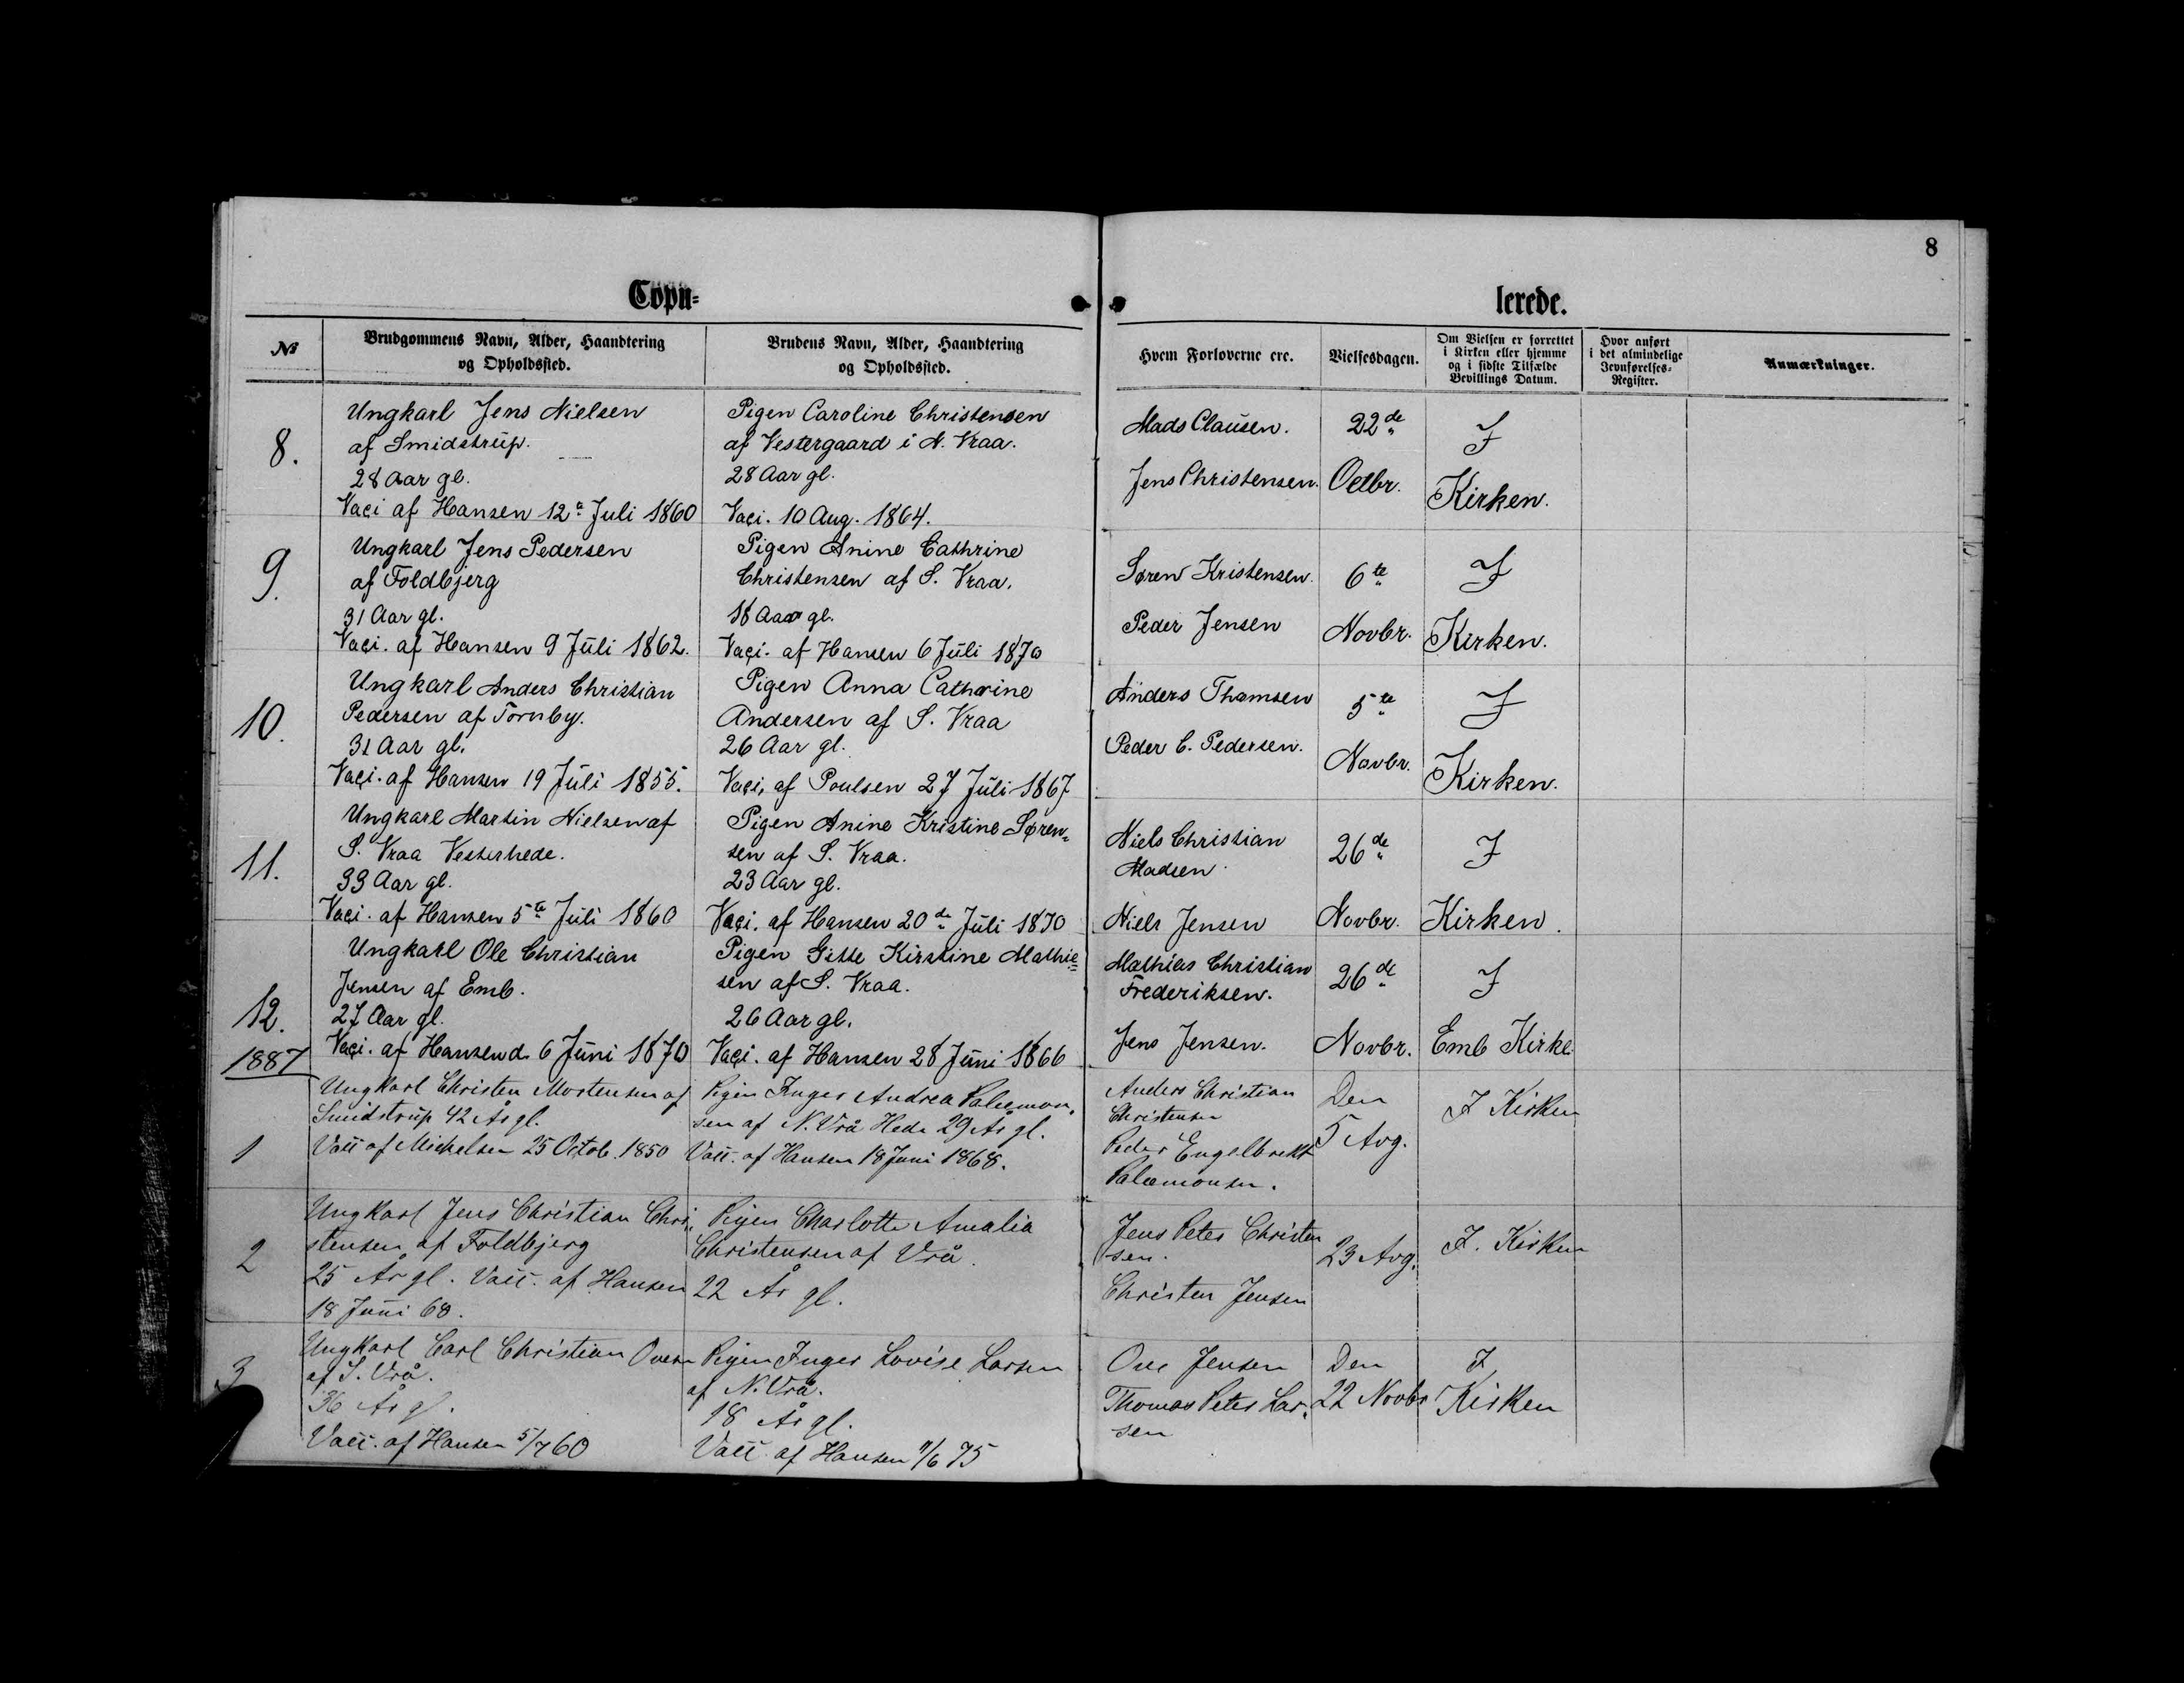 8
Copu=
lerede.
№
Brudgommens Navn, Alder, Haandtering
og Opholdssted.
Brudens Navn, Alder, Haandtering
og Opholdssted.
Hvem Forloverne ere.
Vielsesdagen.
Om Vielsen er forrettet
i Kirken eller hjemme
og i sidste Tilfælde
Bevillings Datum.
Hvor anført
i det almindelige
Jevnførelses-
Register.
Anmærkninger.
8.
Ungkarl Jens Nielsen
af Smidstrup.
28 Aar gl.
Vaci af Hansen 12te Juli 1860
Pigen Caroline Christensen
af Vestergaard i N. Vraa.
28 Aar gl.
Vaci. 10 Aug. 1864.
Mads Clausen.
Jens Christensen.
22de
Octbr.
I
Kirken.
9.
Ungkarl Jens Pedersen
af Foldbjerg
31 Aar gl.
Vaci. af Hansen 9 Juli 1862.
Pigen Anine Cathrine
Christensen af S. Vraa.
18 Aar gl.
Vaci. af Hansen 6 Juli 1870
Søren Kristensen.
Peder Jensen
6te
Novbr.
I
Kirken.
10.
Ungkarl Anders Christian
Pedersen af Tornby.
31 Aar gl.
Vaci. af Hansen 19 Juli 1855.
Pigen Anna Cathrine
Andersen af S. Vraa
26 Aar gl.
Vaci. af Poulsen 27 Juli 1867
Anders Thomsen
Peder C. Pedersen.
5te
Novbr.
I
Kirken.
11.
Ungkarl Martin Nielsen af
S. Vraa Vesterhede.
33 Aar gl.
Vaci. af Hansen 5te Juli 1860
Pigen Anine Kristine Søren=
sen af S. Vraa.
23 Aar gl.
Vaci. af Hansen 20de Juli 1870
Niels Christian
Madsen
Niels Jensen
26de
Novbr.
I
Kirken.
12.
Ungkarl Ole Christian
Jensen af Emb.
27 Aar gl.
Vaci. af Hansen d. 6 Juni 1870
Pigen Gitte Kirstine Mathie=
sen af S. Vraa.
26 Aar gl.
Vaci. af Hansen 28 Juni 1866
Mathias Christian
Frederiksen.
Jens Jensen.
26de
Novbr.
I
Emb Kirke
1887
1
Ungkarl Christen Mortensen af
Smidstrup 42 År gl.
Vacc af Michelsen 25 Octob. 1850
Pigen Inger Andrea Palæmon=
sen af N. Vrå Hede 29 År gl.
Vacc. af Hansen 18 Juni 1868.
Anders Christian
Christensen
Peder Engelbrekt
Palæmonsen.
Den
5 Avg.
I Kirken
2
Ungkarl Jens Christian Chri=
stensen af Foldbjerg
25 År gl. Vacc. af Hansen
18 Juni 68.
Pigen Charlotte Amalia
Christensen af Vrå.
22 År gl.
Jens Peter Christen
sen.
Christen Jensen
23 Avg.
I. Kirken
3
Ungkarl Carl Christian Ovesen
af S. Vrå.
36 År gl.
Vacc. af Hansen 5/7 60
Pigen Inger Lovise Larsen
af N. Vrå.
18 År gl.
Vacc. af Hansen 7/6 75
Ove Jensen
Thomas Peter Lar=
sen
Den
22 Novbr
I
Kirken